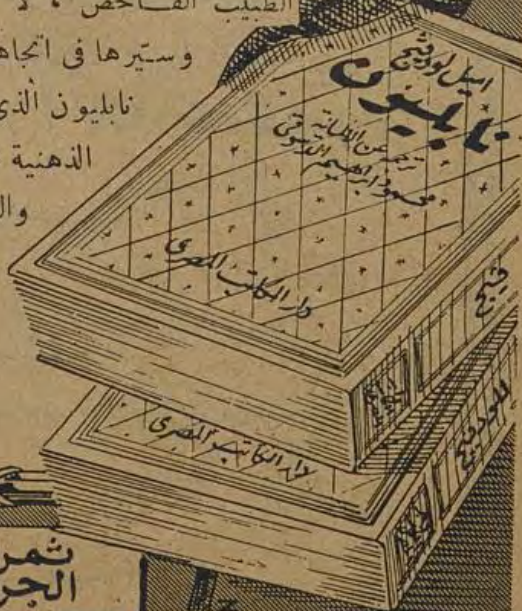 الطبيب الفاحص ، لا
وستيرها فى اتجاها
نابليون الذى
الذهنية
وال
اميل لودفيج
نابليون
ترجمه عن الألمانية
محمود ابراهيم الدسوقى
دار الكاتب المصرى
فيج
دار الكاتب المصرى
لودفيج
ثمر
الجز